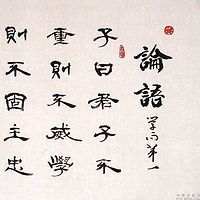 論語
學而第一
子曰君子不
重則不威學
則不固主忠